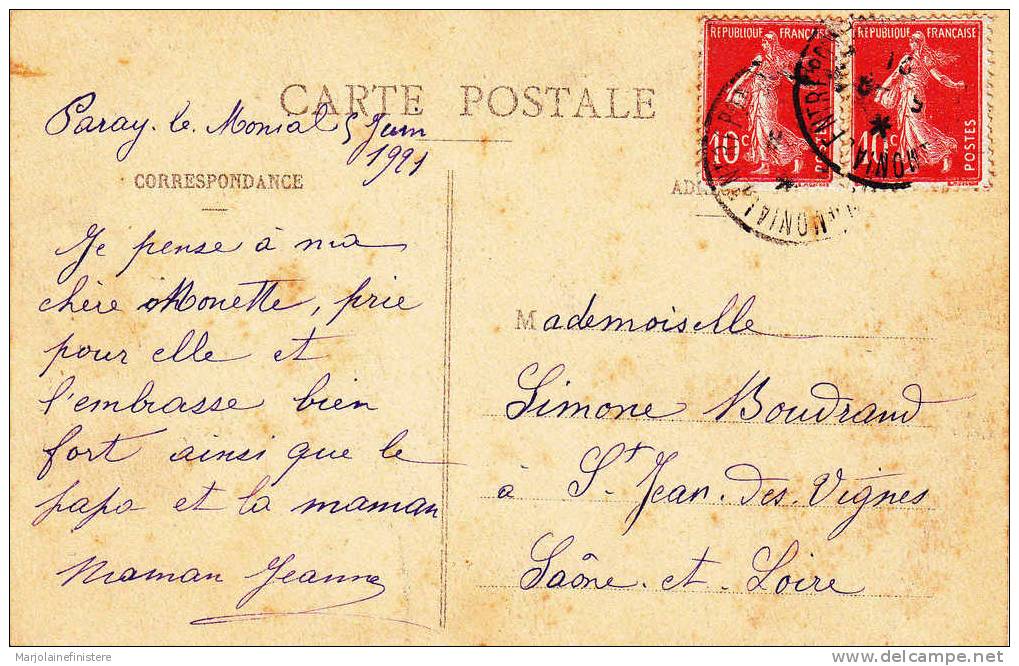 CARTE POSTALE
RÉPUBLIQUE FRANÇAISE
10c
POSTES
RÉPUBLIQUE FRANÇAISE
10c
POSTES
Paray-le-Monial 5 Juin
1921
CORRESPONDANCE
Je pense à ma
chère Monette, prie
pour elle et
l'embrasse bien
fort ainsi que le
papa et la maman
Maman Jeanne
Mademoiselle
Simone Boudrand
à St Jean-des-Vignes
Saône-et-Loire
Marjolainefinistere
www.delcampe.net